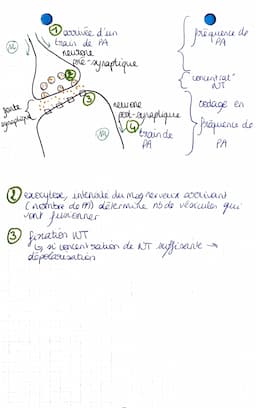 ① arrivée d'un
train de PA
neurone
pré-synaptique
②
③
fente
synaptique
neurone
post-synaptique
④ train de
PA
fréquence de
PA
concentrat°
NT
codage en
fréquence de
PA
② exocytose, intensité du msg nerveux arrivant
(nombre de PA) détermine nb de vésicules qui
vont fusionner
③ fixation NT
↳ si concentration de NT suffisante →
dépolarisation